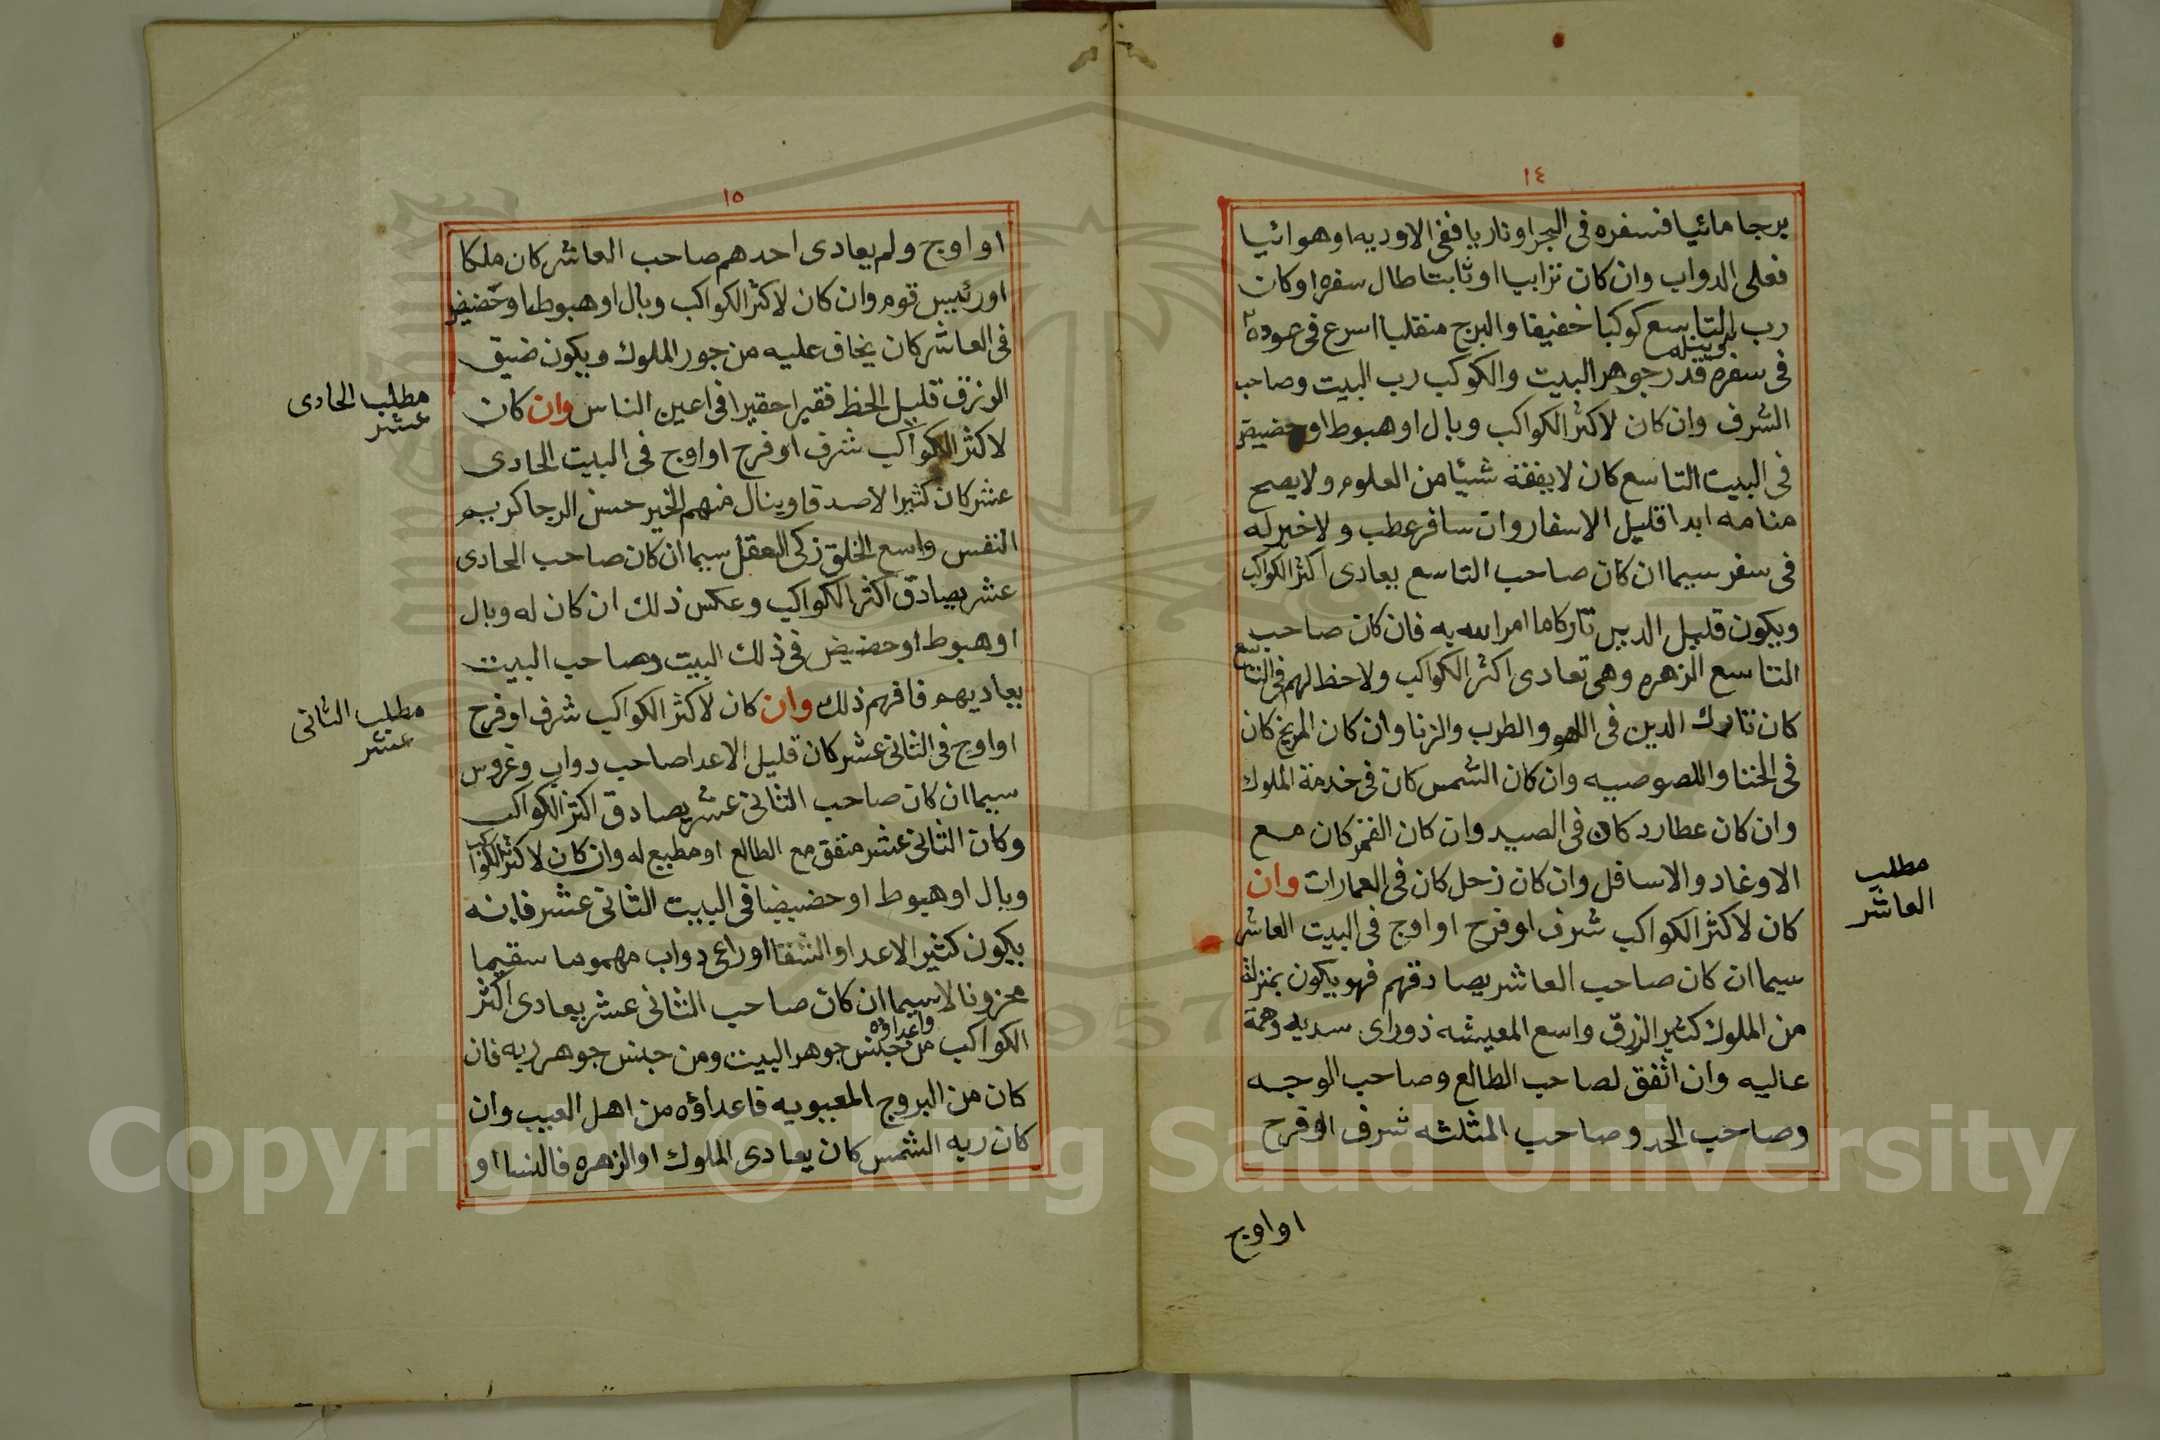 ١٤
برجا مائيا فسفره فى البحر او ناريا ففى الاوديه او هوائيا
فعلى الدواب وان كان ترابيا او ثابتا طال سفره او كان
رب التاسع كوكبا خفيفا والبرج منقلبا اسرع فى عوده
فى سفره قدر جوهر البيت والكوكب رب البيت وصاحب
الشرف وان كان لاكثر الكواكب وبال او هبوط او حضيض
فى البيت التاسع كان لا يفقه شيئا من العلوم ولا يصح
منامه ابدا قليل الاسفار وان سافر عطب ولا خير له
فى سفر سيما ان كان صاحب التاسع يعادى اكثر الكواكب
ويكون قليل الدين تاركا ما امر الله به فان كان صاحب
التاسع الزهره وهى تعادى اكثر الكواكب ولا حظ لهم فى التاسع
كان تارك الدين فى اللهو والطرب والزنا وان كان المريخ كان
فى الخنا واللصوصيه وان كان الشمس كان فى خدمة الملوك
وان كان عطارد كان فى الصيد وان كان القمر كان مع
الاوغاد والاسافل وان كان زحل كان فى العمارات وان
كان لاكثر الكواكب شرف او فرح او اوج فى البيت العاشر
سيما ان كان صاحب العاشر يصادقهم فهو يكون بمنزلة
من الملوك كثير الرزق واسع المعيشه ذو راى سديد وهمة
عاليه وان اتفق لصاحب الطالع وصاحب الوجه
وصاحب الحد وصاحب المثلثه شرف او فرح
او اوج
مطلب
العاشر
١٥
او اوج ولم يعادى احدهم صاحب العاشر كان ملكا
او رئيس قوم وان كان لاكثر الكواكب وبال او هبوط او حضيض
فى العاشر كان يخاف عليه من جور الملوك ويكون ضيق
الرزق قليل الحظ فقيرا حقيرا فى اعين الناس وان كان
لاكثر الكواكب شرف او فرح او اوج فى البيت الحادى
عشر كان كثير الاصدقا وينال منهم الخير حسن الرجا كريم
النفس واسع الخلق زكى العقل سيما ان كان صاحب الحادى
عشر يصادق اكثر الكواكب وعكس ذلك ان كان له وبال
او هبوط او حضيض فى ذلك البيت وصاحب البيت
يعاديهم فافهم ذلك وان كان لاكثر الكواكب شرف او فرح
او اوج فى الثانى عشر كان قليل الاعدا صاحب دواب وغروس
سيما ان كان صاحب الثانى عشر يصادق اكثر الكواكب
وكان الثانى عشر متفق مع الطالع او مطيع له وان كان لاكثر الكواكب
وبال او هبوط او حضيضا فى البيت الثانى عشر فانه
يكون كثير الاعدا والشقا او راعى دواب مهموما سقيما
محزونا لا سيما ان كان صاحب الثانى عشر يعادى اكثر
الكواكب واعداؤه من جنس جوهر البيت ومن جنس جوهر ربه فان
كان من البروج المعيوبه فاعداؤه من اهل العيب وان
كان ربه الشمس كان يعادى الملوك او الزهره فالنسا او
مطلب الحادى
عشر
مطلب الثانى
عشر
1957
Copyright © King Saud University